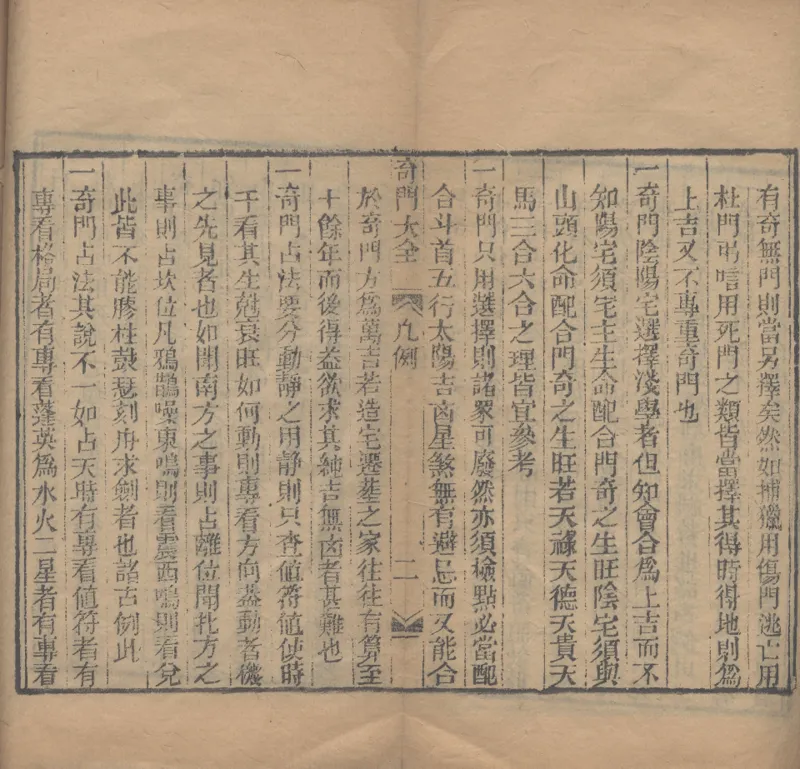 有奇無門則當另擇矣然如捕獵用傷門逃亡用
杜門弔唁用死門之類皆當擇其得時得地則為
上吉又不專重奇門也
一奇門陰陽宅選擇淺學者但知會合為上吉而不
知陽宅須宅主生命配合門奇之生旺陰宅須與
山頭化命配合門奇之生旺若天祿天德天貴天
馬三合六合之理皆宜參考
一奇門只用選擇則諸家可廢然亦須檢點必當配
合斗首五行太陽吉凶星煞無有避忌而又能合
奇門大全 凡例 二
於奇門方為萬吉若造宅遷塟之家往往有算至
十餘年而後得益欲求其純吉無凶者甚難也
一奇門占法要分動靜之用静則只查值符值使時
干看其生尅衰旺如何動則專看方向蓋動者機
之先見者也如聞南方之事則占離位聞北方之
事則占坎位凡鴉鵲噪東鳴則看震西鳴則看兌
此皆不能膠柱鼓瑟刻舟求劍者也諸占例此
一奇門占法其說不一如占天時有專看值符者有
專看格局者有專看蓬英為水火二星者有專看